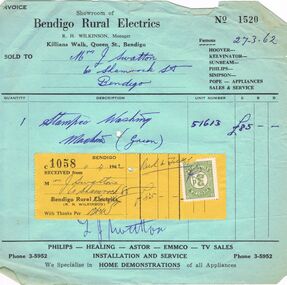 INVOICE
Showroom of
Bendigo Rural Electrics
R. H. WILKINSON, Manager
Killians Walk, Queen St., Bendigo
No 1520
27-3-62
Famous
HOOVER—
KELVINATOR—
SUNBEAM—
PHILIPS—
SIMPSON—
POPE – APPLIANCES
SALES & SERVICE
SOLD TO
Mrs J Swatton
6 Shamrock St
Bendigo
QUANTITY DESCRIPTION UNIT NUMBER £ S. D.
1 Simpson Washing 51613 £85 - -
Machine (Green)
C1058 BENDIGO
1962
RECEIVED from
M
Bendigo Rural Electrics
(R. H. WILKINSON)
With Thanks Per
PHILIPS — HEALING — ASTOR — EMMCO — TV SALES
Phone 3-5952 INSTALLATION AND SERVICE Phone 3-5952
We Specialise in HOME DEMONSTRATIONS of all Appliances